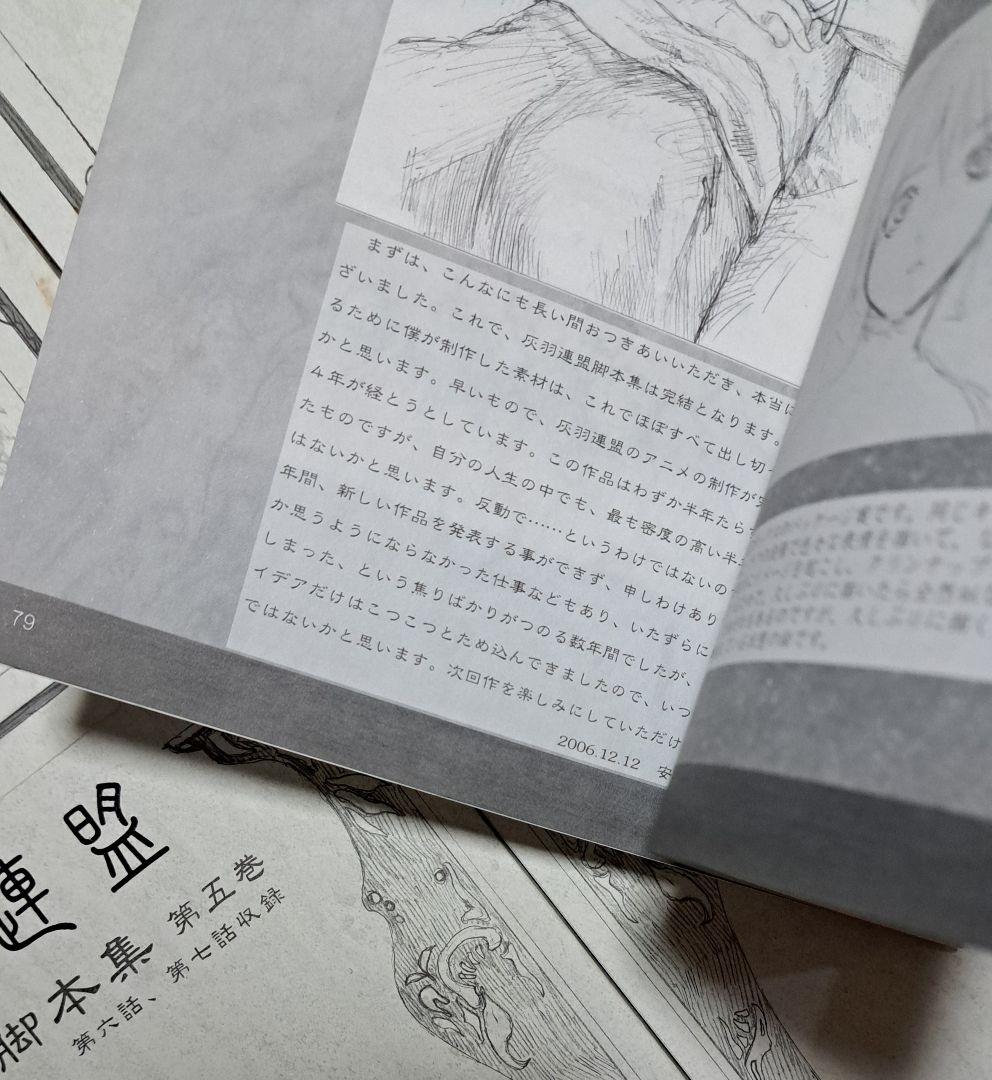 まずは、こんなにも長い間おつきあいいただき、本当に
ざいました。これで、灰羽連盟脚本集は完結となります。
るために僕が制作した素材は、これでほぼすべて出し切
かと思います。早いもので、灰羽連盟のアニメの制作が
４年が経とうとしています。この作品はわずか半年たらず
たものですが、自分の人生の中でも、最も密度の高い半
はないかと思います。反動で……というわけではないの
年間、新しい作品を発表する事ができず、申しわけあり
か思うようにならなかった仕事などもあり、いたずらに
しまった、という焦りばかりがつのる数年間でしたが、
イデアだけはこつこつとため込んできましたので、いつ
ではないかと思います。次回作を楽しみにしていただけ
2006.12.12 安
79
連盟
脚本集 第五巻
第六話、第七話収録